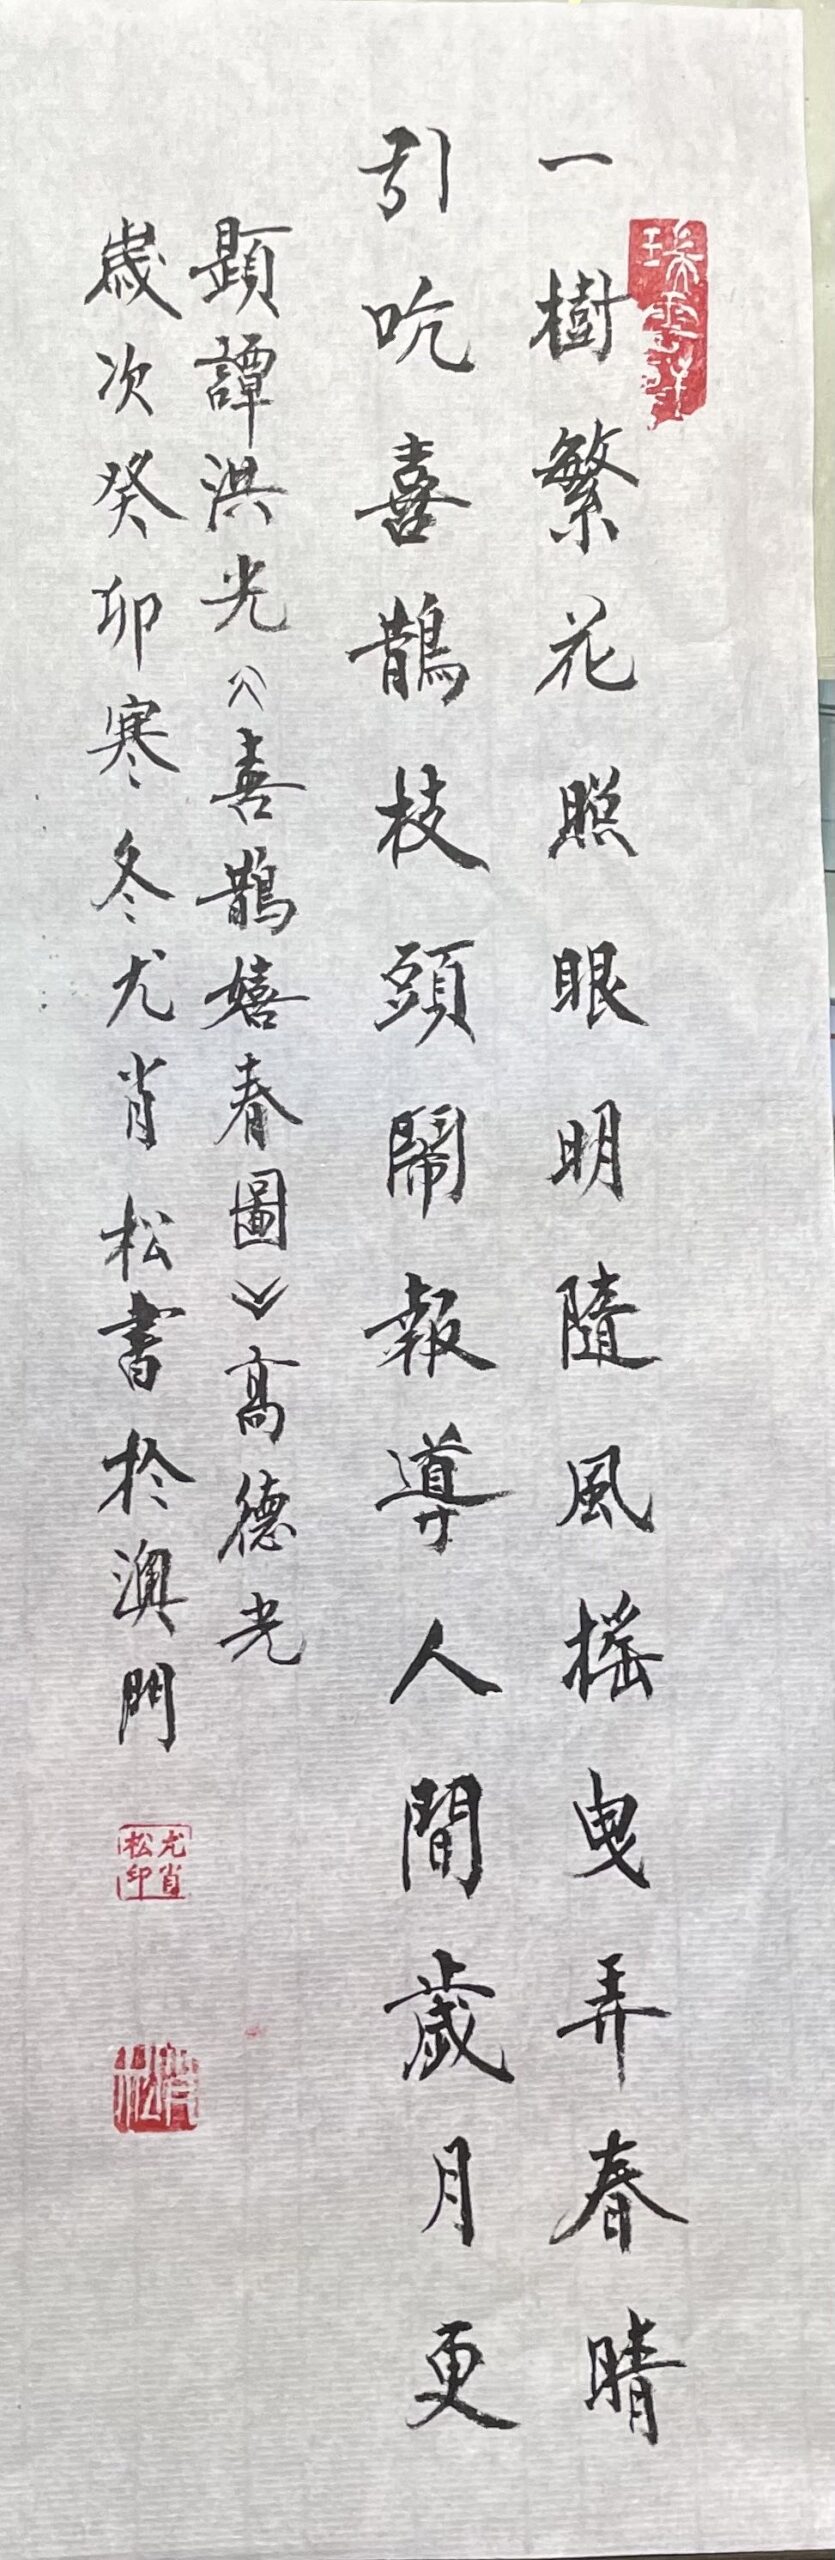 一樹繁花照眼明隨風搖曳弄春晴
引吭喜鵲枝頭鬧報導人間歲月更
題譚洪光《喜鵲嬉春圖》高德光
歲次癸卯寒冬尤肖松書於澳門
尤肖松印